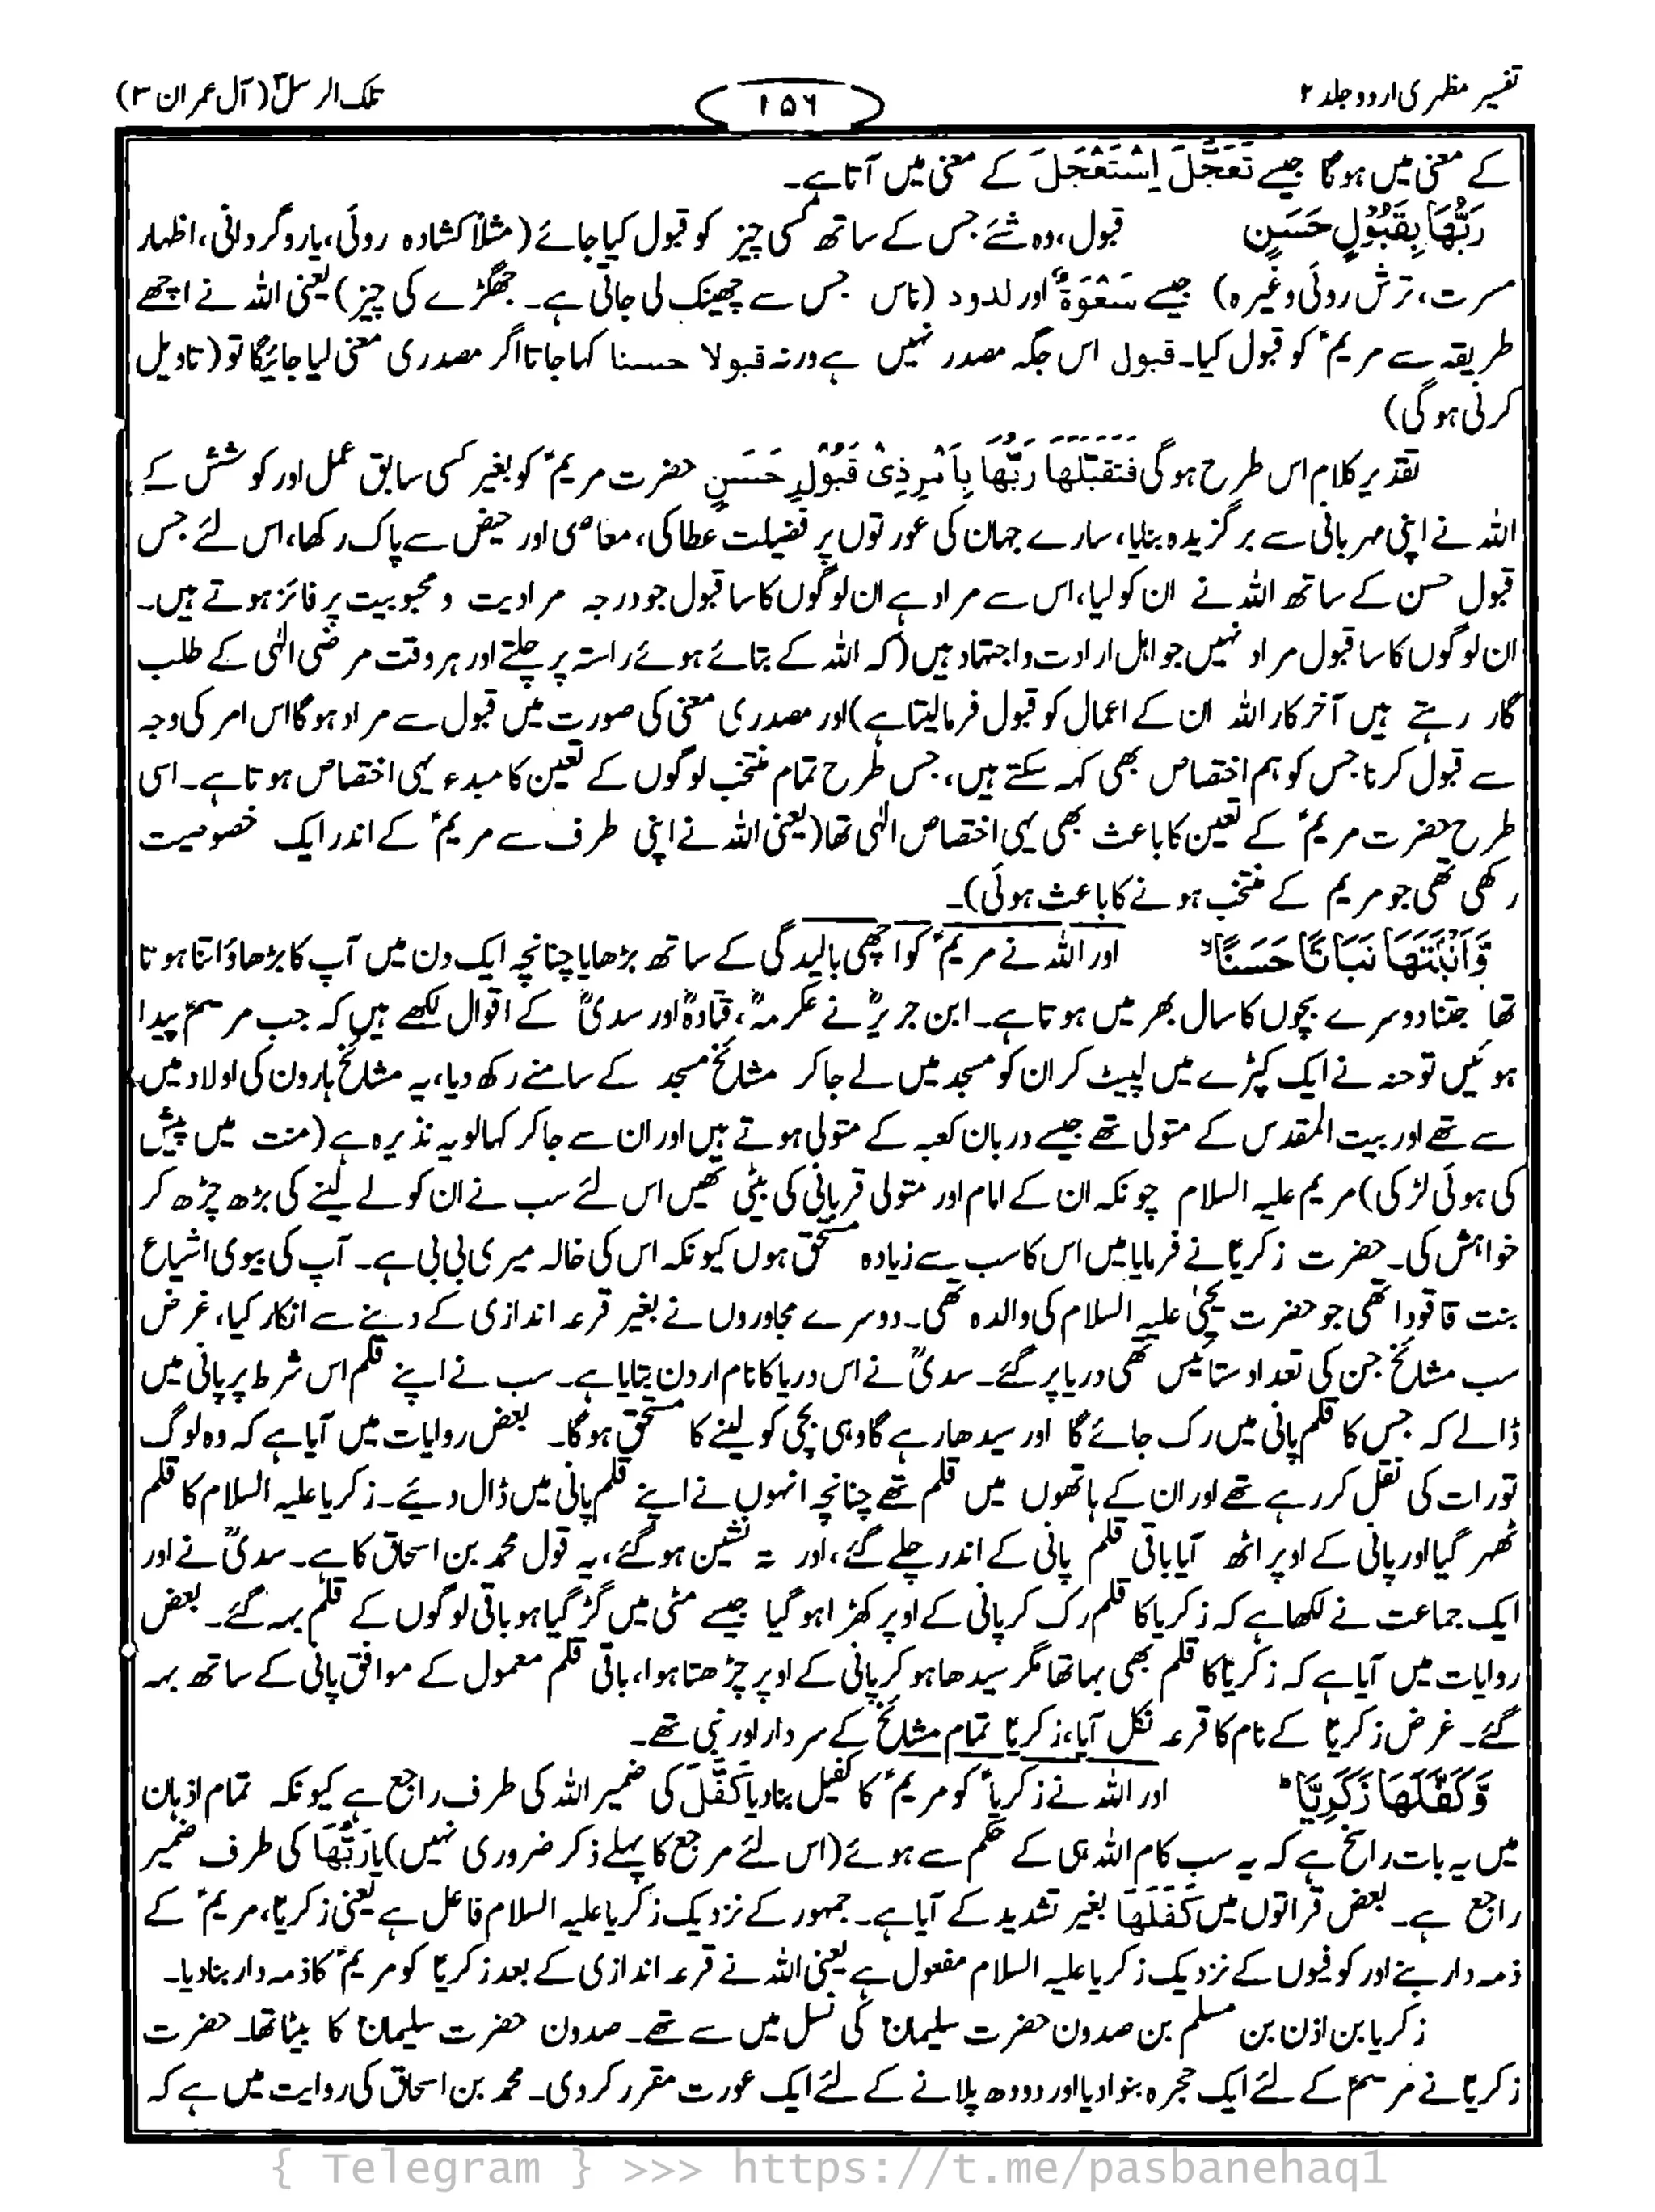 تفسیر مظہری اردو جلد ۲
۱۵۶
تلک الرسل ۳ (آل عمران ۳)
کے معنی میں ہوگا جیسے تَعَجَّلَ اِسْتَعْجَلَ کے معنی میں آتا ہے۔
رَبُّهَا بِقَبُوْلٍ حَسَنٍ قبول، وہ شئے جس کے ساتھ کسی چیز کو قبول کیا جائے (مثلاً کشادہ روئی، یا روگردانی، اظہار
مسرت، ترش روئی وغیرہ) جیسے سَعُوْۃٌ اور لدود (ناس جس سے چھینک لی جاتی ہے۔ جھگڑے کی چیز) یعنی اللہ نے اچھے
طریقہ سے مریمؑ کو قبول کیا۔ قبول اس جگہ مصدر نہیں ہے ورنہ قبولا حسنا کہا جاتا اگر مصدری معنی لیا جائیگا تو (تاویل
کرنی ہوگی)
تقدیر کلام اس طرح ہوگی فَتَقَبَّلَهَا رَبُّهَا بِاَمْرٍ ذِیْ قَبُوْلٍ حَسَنٍ حضرت مریمؑ کو بغیر کسی سابق عمل اور کوشش کے
اللہ نے اپنی مہربانی سے برگزیدہ بنایا، سارے جہان کی عورتوں پر فضیلت عطا کی، معاصی اور حیض سے پاک رکھا، اس لئے جس
قبول حسن کے ساتھ اللہ نے ان کو لیا، اس سے مراد ہے ان لوگوں کا سا قبول جو درجہ مرادیت و محبوبیت پر فائز ہوتے ہیں۔
ان لوگوں کا سا قبول مراد نہیں جو اہل ارادت و اجتہاد ہیں (کہ اللہ کے بتائے ہوئے راستہ پر چلتے اور ہر وقت مرضی الٰہی کے طلب
گار رہتے ہیں آخرکار اللہ ان کے اعمال کو قبول فرما لیتا ہے) اور مصدری معنی کی صورت میں قبول سے مراد ہوگا اس امر کی وجہ
سے قبول کرنا جس کو ہم اختصاص بھی کہہ سکتے ہیں، جس طرح تمام منتخب لوگوں کے تعین کا مبدء یہی اختصاص ہوتا ہے۔ اسی
طرح حضرت مریمؑ کے تعین کا باعث بھی یہی اختصاص الٰہی تھا (یعنی اللہ نے اپنی طرف سے مریمؑ کے اندر ایک خصوصیت
رکھی تھی جو مریم کے منتخب ہونے کا باعث ہوئی)۔
وَّاَنْۢبَتَهَا نَبَاتًا حَسَنًا ۙ اور اللہ نے مریمؑ کو اچھی بالیدگی کے ساتھ بڑھایا چنانچہ ایک دن میں آپ کا بڑھاؤ اتنا ہوتا
تھا جتنا دوسرے بچوں کا سال بھر میں ہوتا ہے۔ ابن جریرؒ نے عکرمہؒ، قتادہؒ اور سدیؒ کے اقوال لکھے ہیں کہ جب مریمؑ پیدا
ہوئیں تو حنہ نے ایک کپڑے میں لپیٹ کر ان کو مسجد میں لے جا کر مشائخ مسجد کے سامنے رکھ دیا، یہ مشائخ ہارون کی اولاد میں
سے تھے اور بیت المقدس کے متولی تھے جیسے دربان کعبہ کے متولی ہوتے ہیں اور ان سے جا کر کہا لو یہ نذیرہ ہے (منت میں پیش
کی ہوئی لڑکی) مریم علیہ السلام چونکہ ان کے امام اور متولی قربانی کی بیٹی تھیں اس لئے سب نے ان کو لے لینے کی بڑھ چڑھ کر
خواہش کی۔ حضرت زکریاؑ نے فرمایا میں اس کا سب سے زیادہ مستحق ہوں کیونکہ اس کی خالہ میری بی بی ہے۔ آپ کی بیوی اشیاع
بنت قاقودا تھی جو حضرت یحییٰ علیہ السلام کی والدہ تھی۔ دوسرے مجاوروں نے بغیر قرعہ اندازی کے دینے سے انکار کیا، غرض
سب مشائخ جن کی تعداد ستائیس تھی دریا پر گئے۔ سدیؒ نے اس دریا کا نام اردن بتایا ہے۔ سب نے اپنے قلم اس شرط پر پانی میں
ڈالے کہ جس کا قلم پانی میں رک جائے گا اور سیدھا رہے گا وہی بچی کو لینے کا مستحق ہوگا۔ بعض روایات میں آیا ہے کہ وہ لوگ
تورات کی نقل کر رہے تھے اور ان کے ہاتھوں میں قلم تھے چنانچہ انہوں نے اپنے قلم پانی میں ڈال دیئے۔ زکریا علیہ السلام کا قلم
ٹھہر گیا اور پانی کے اوپر اٹھ آیا باقی قلم پانی کے اندر چلے گئے، اور تہ نشین ہوگئے، یہ قول محمد بن اسحاق کا ہے۔ سدیؒ نے اور
ایک جماعت نے لکھا ہے کہ زکریا کا قلم رک کر پانی کے اوپر کھڑا ہوگیا جیسے مٹی میں گڑ گیا ہو باقی لوگوں کے قلم بہہ گئے۔ بعض
روایات میں آیا ہے کہ زکریاؑ کا قلم بھی بہا تھا مگر سیدھا ہو کر پانی کے اوپر چڑھتا ہوا، باقی قلم معمول کے موافق پانی کے ساتھ بہہ
گئے۔ غرض زکریاؑ کے نام کا قرعہ نکل آیا، زکریاؑ تمام مشائخ کے سردار اور نبی تھے۔
وَّكَفَّلَهَا زَكَرِيَّا ؕ اور اللہ نے زکریاؑ کو مریمؑ کا کفیل بنا دیا كَفَّلَ کی ضمیر اللہ کی طرف راجع ہے کیونکہ تمام اذہان
میں یہ بات راسخ ہے کہ یہ سب کام اللہ ہی کے حکم سے ہوئے (اس لئے مرجع کا پہلے ذکر ضروری نہیں) یا رَبُّهَا کی طرف ضمیر
راجع ہے۔ بعض قراتوں میں كَفَلَهَا بغیر تشدید کے آیا ہے۔ جمہور کے نزدیک زکریا علیہ السلام فاعل ہے یعنی زکریاؑ، مریمؑ کے
ذمہ دار بنے اور کوفیوں کے نزدیک زکریا علیہ السلام مفعول ہے یعنی اللہ نے قرعہ اندازی کے بعد زکریاؑ کو مریمؑ کا ذمہ دار بنا دیا۔
زکریا بن اذن بن مسلم بن صدون حضرت سلیمانؑ کی نسل میں سے تھے۔ صدون حضرت سلیمانؑ کا بیٹا تھا۔ حضرت
زکریاؑ نے مریمؑ کے لئے ایک حجرہ بنوا دیا اور دودھ پلانے کے لئے ایک عورت مقرر کردی۔ محمد بن اسحاق کی روایت میں ہے کہ
{ Telegram } >>> https://t.me/pasbanehaq1